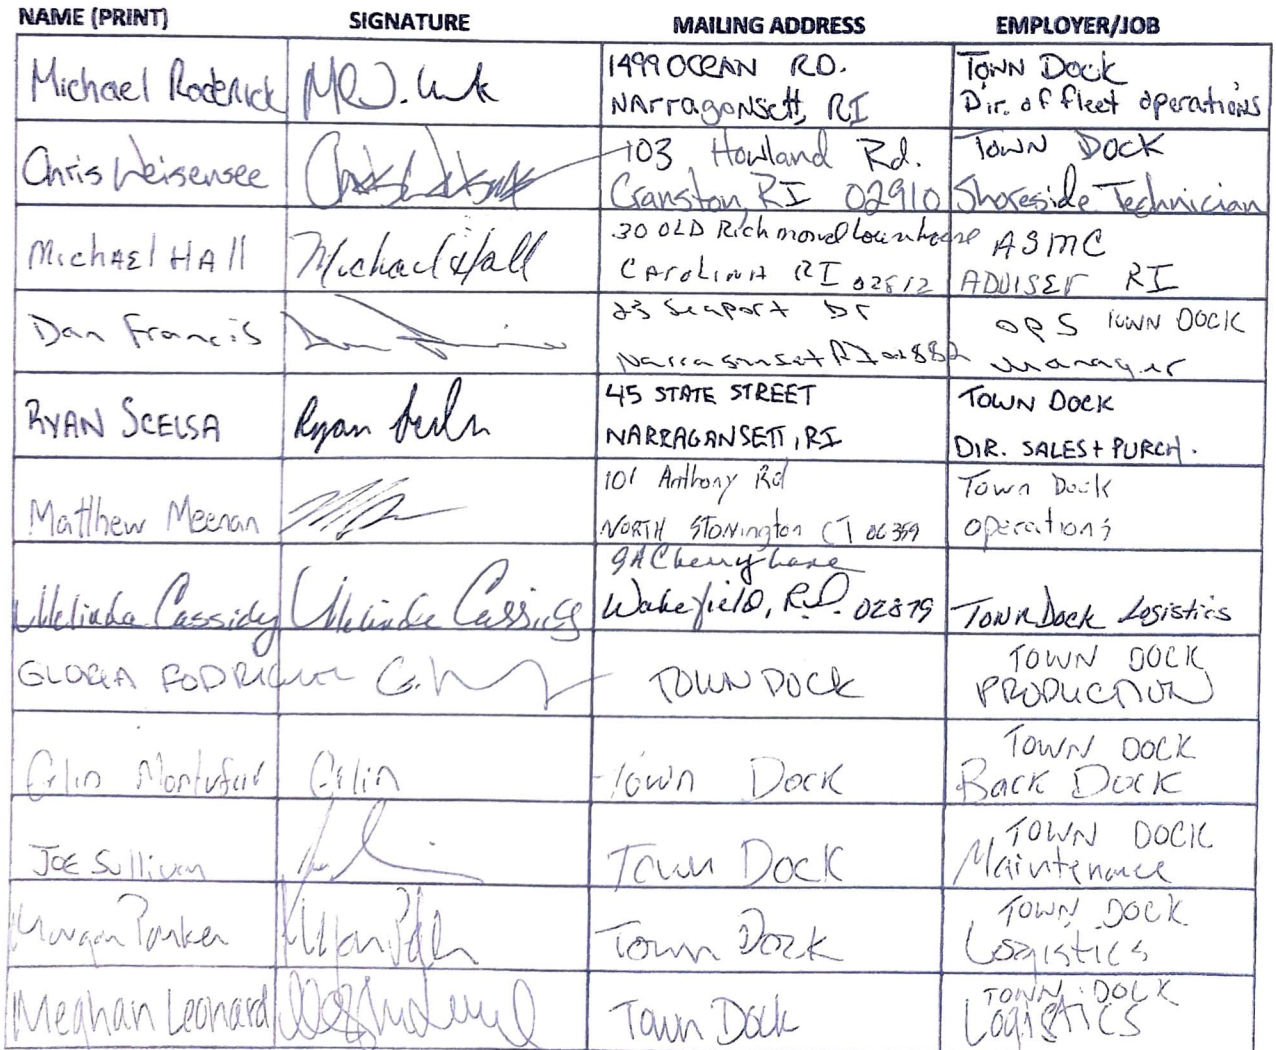 NAME (PRINT) SIGNATURE MAILING ADDRESS EMPLOYER/JOB
Michael Roderick 1499 OCEAN RD. TOWN Dock
NArragansett, RI Dir. of fleet operations
Chris Weisensee 103 Howland Rd. TOWN DOCK
Cranston, RI 02910 Shoreside Technician
MichAEl HAll Michael Hall 30 OLD Richmond townhouse ASMC
CArolinA RI 02812 ADVISEr RI
Dan Francis 23 Seaport Dr OPS TOWN DOCK
Narragansett RI 02882 manager
RYAN SCELSA Ryan 45 STATE STREET TOWN DOCK
NARRAGANSETT, RI DIR. SALES + PURCH.
Matthew Meenan 101 Anthony Rd Town Dock
NORTH Stonington CT 06359 operations
Melinda Cassidy Melinda Cassidy 9A Cherry Lane
Wakefield, R.I. 02879 Town Dock Logistics
GLORIA RODRIGUEZ TOWN DOCK TOWN DOCK
PRODUCTION
Town Dock TOWN DOCK
Back Dock
JOE Sullivan Town Dock TOWN DOCK
Maintenance
Morgan Parker Town Dock TOWN DOCK
Logistics
Meghan Leonard Town Dock TOWN DOCK
LOGISTICS